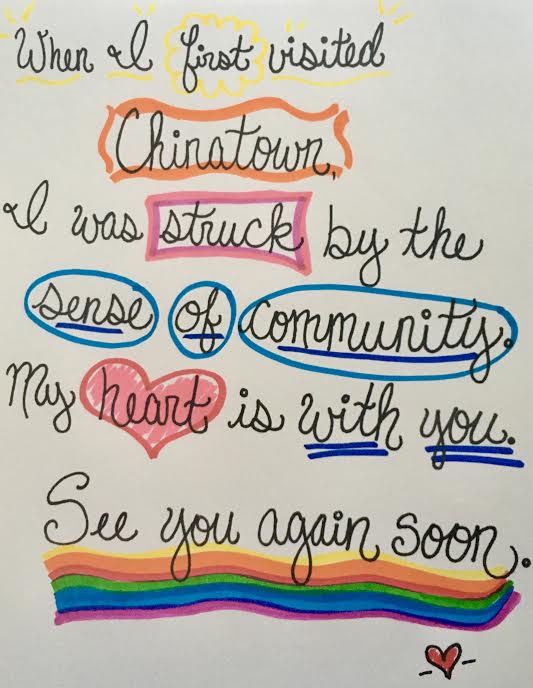 When I first visited
Chinatown,
I was struck by the
sense of community.
My heart is with you.
See you again soon.